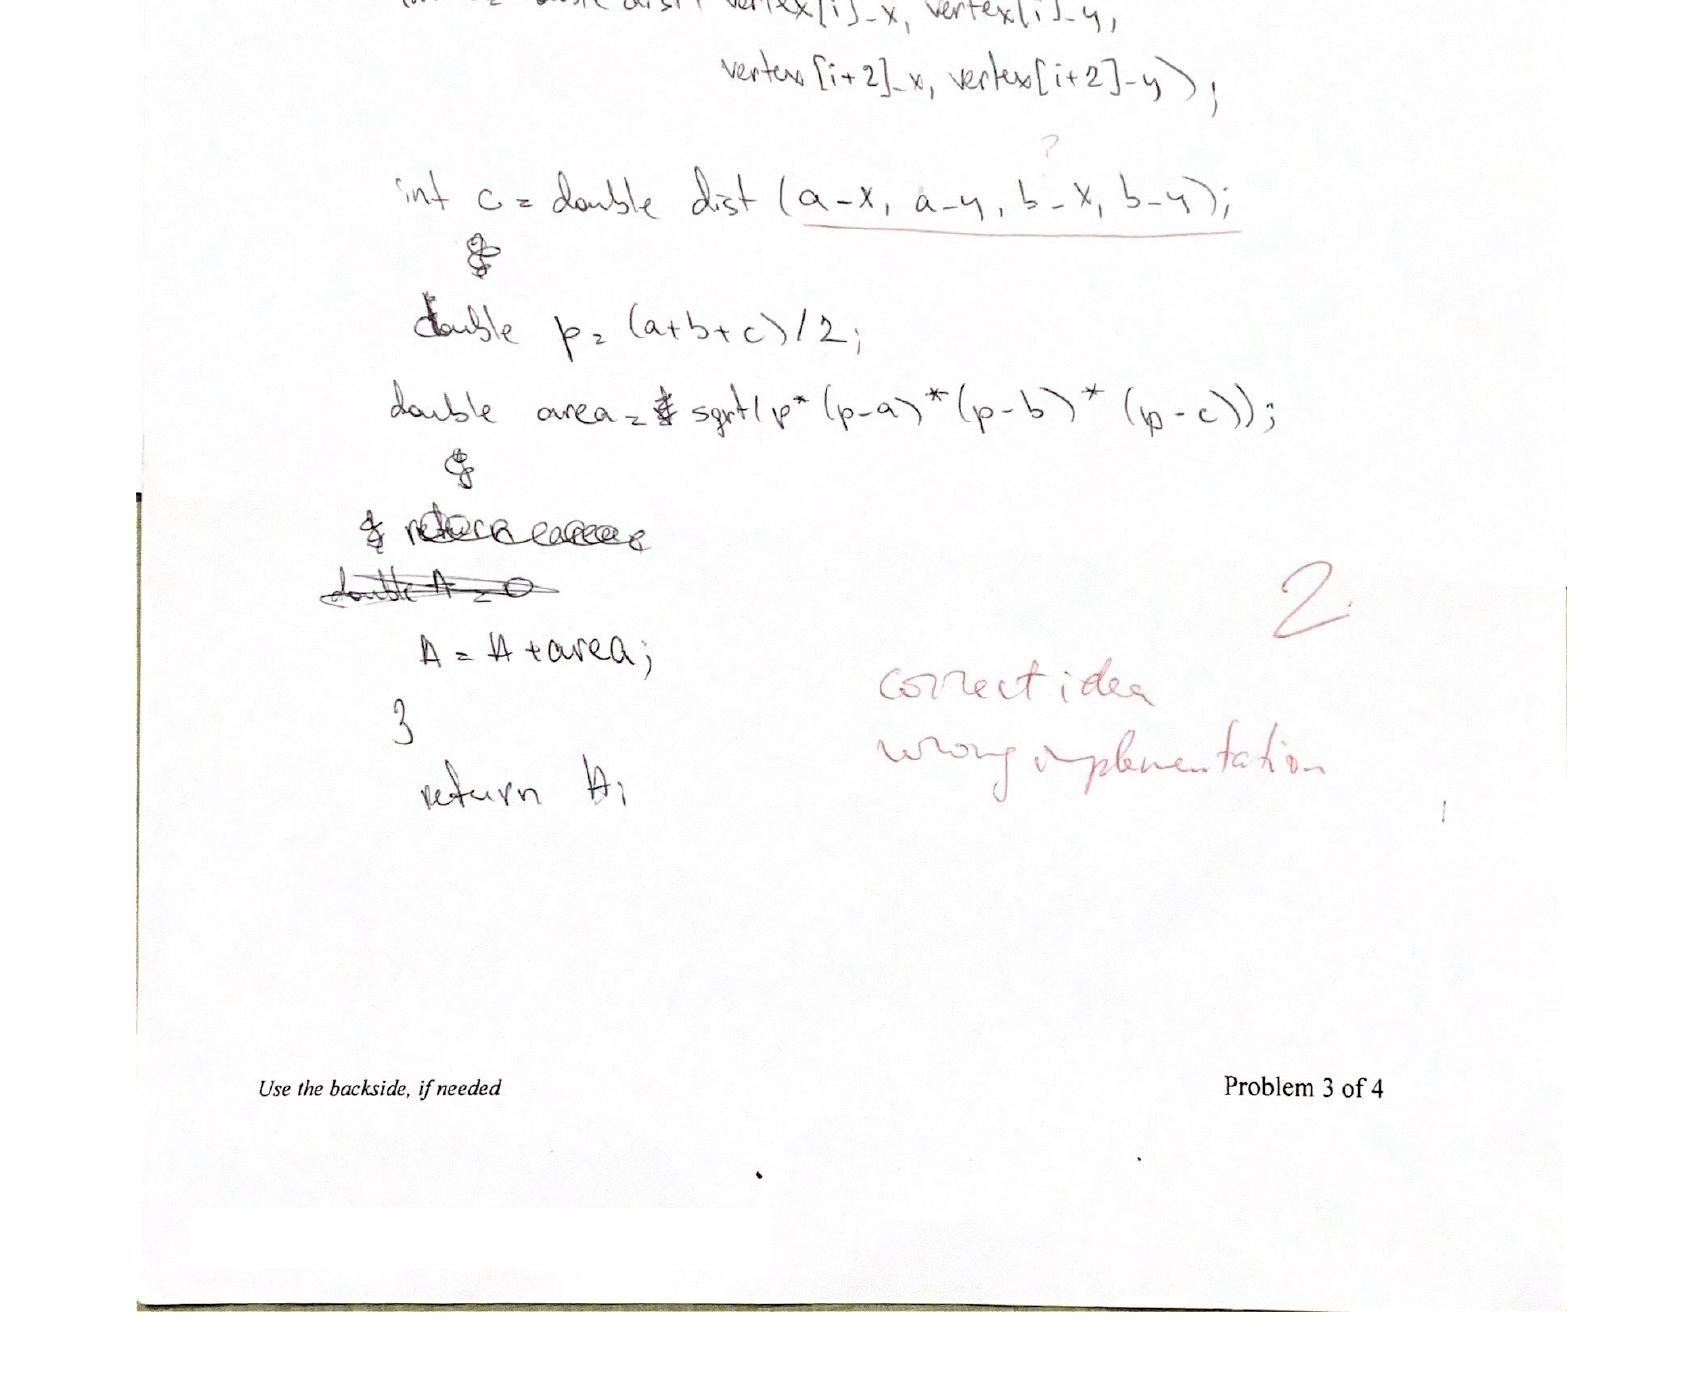 vertex[i]-x, vertex[i]-y,
vertex [i+2]-x, vertex[i+2]-y);
?
int c = double dist (a-x, a-y, b-x, b-y);
double p = (a+b+c)/2;
double area = sqrt(p* (p-a)* (p-b)* (p-c));
double A = 0
A = A +area;
}
return A;
2
correct idea
wrong implementation
Use the backside, if needed
Problem 3 of 4